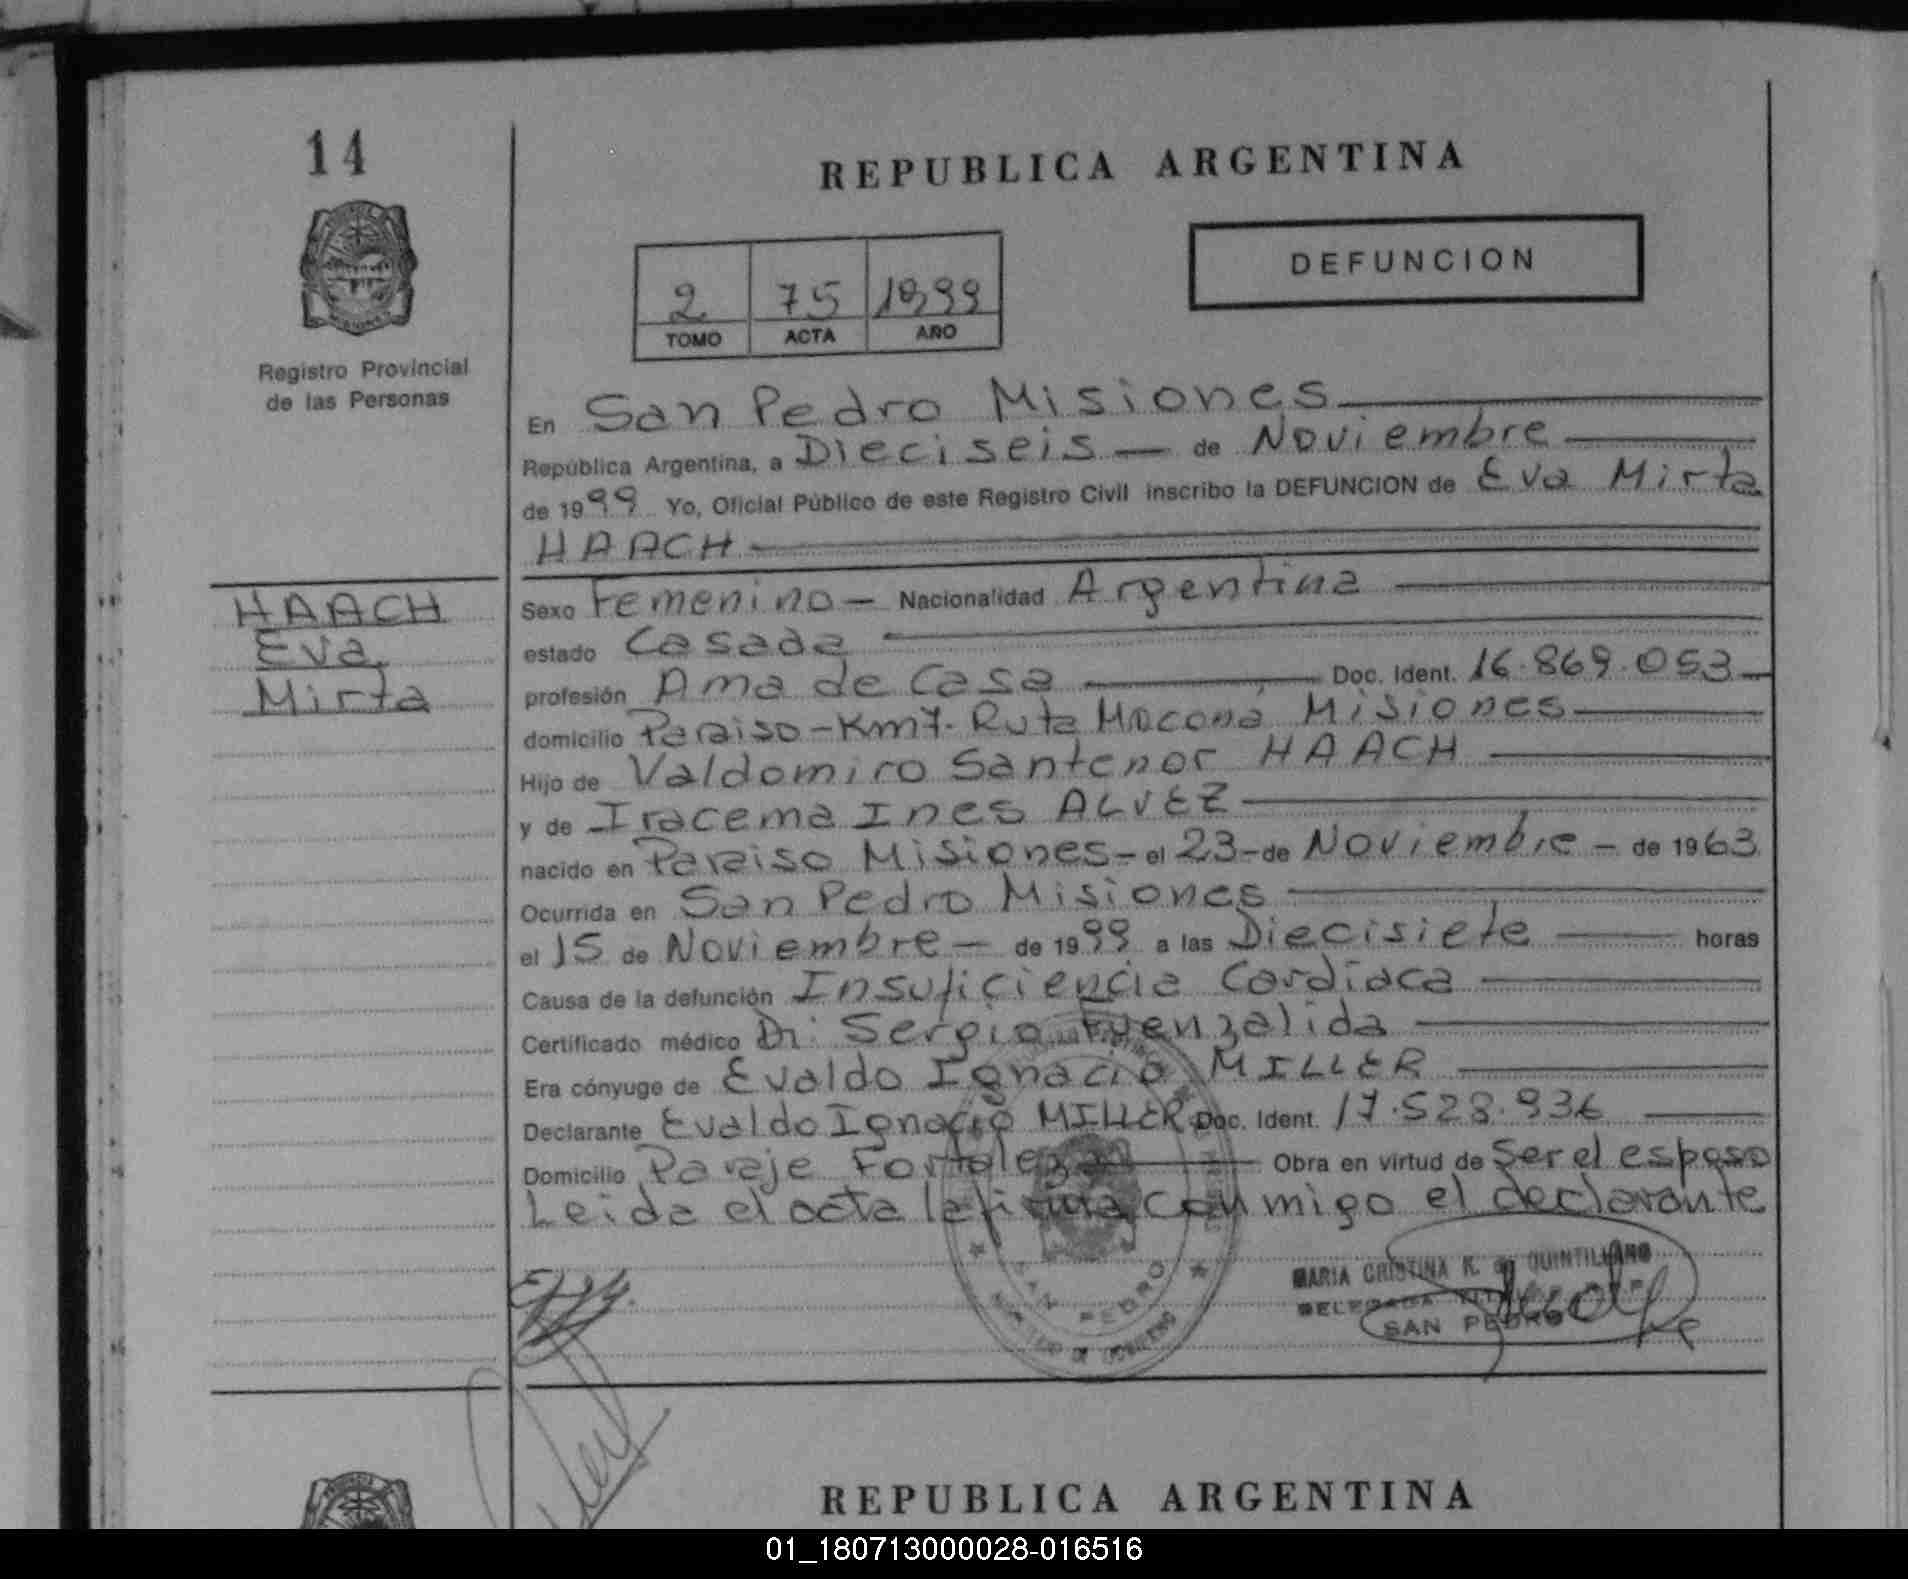 14
REPUBLICA ARGENTINA
DEFUNCION
2 75 1999
TOMO ACTA AÑO
Registro Provincial
de las Personas
En San Pedro Misiones
República Argentina, a Dieciseis de Noviembre
de 1999 Yo, Oficial Público de este Registro Civil inscribo la DEFUNCION de Eva Mirta
HAACH
HAACH
Eva
Mirta
Sexo Femenino - Nacionalidad Argentina
estado Casada
profesión Ama de Casa Doc. Ident. 16.869.053
domicilio Paraiso - Km 7. Ruta Mocona Misiones
Hijo de Valdomiro Santenor HAACH
y de Iracema Ines ALVEZ
nacido en Paraiso Misiones - el 23 - de Noviembre - de 1963
Ocurrida en San Pedro Misiones
el 15 de Noviembre - de 1999 a las Diecisiete horas
Causa de la defunción Insuficiencia Cardíaca
Certificado médico Dr. Sergio Fuenzalida
Era cónyuge de Evaldo Ignacio MILLER
Declarante Evaldo Ignacio MILLER Doc. Ident. 17.528.936
Domicilio Paraje Fortaleza Obra en virtud de Ser el esposo
Leida el acta la firma conmigo el declarante
MARIA CRISTINA K. de QUINTILLANO
DELEGADA
SAN PEDRO
SAN PEDRO
MINISTERIO DE GOBIERNO
REPUBLICA ARGENTINA
01_180713000028-016516